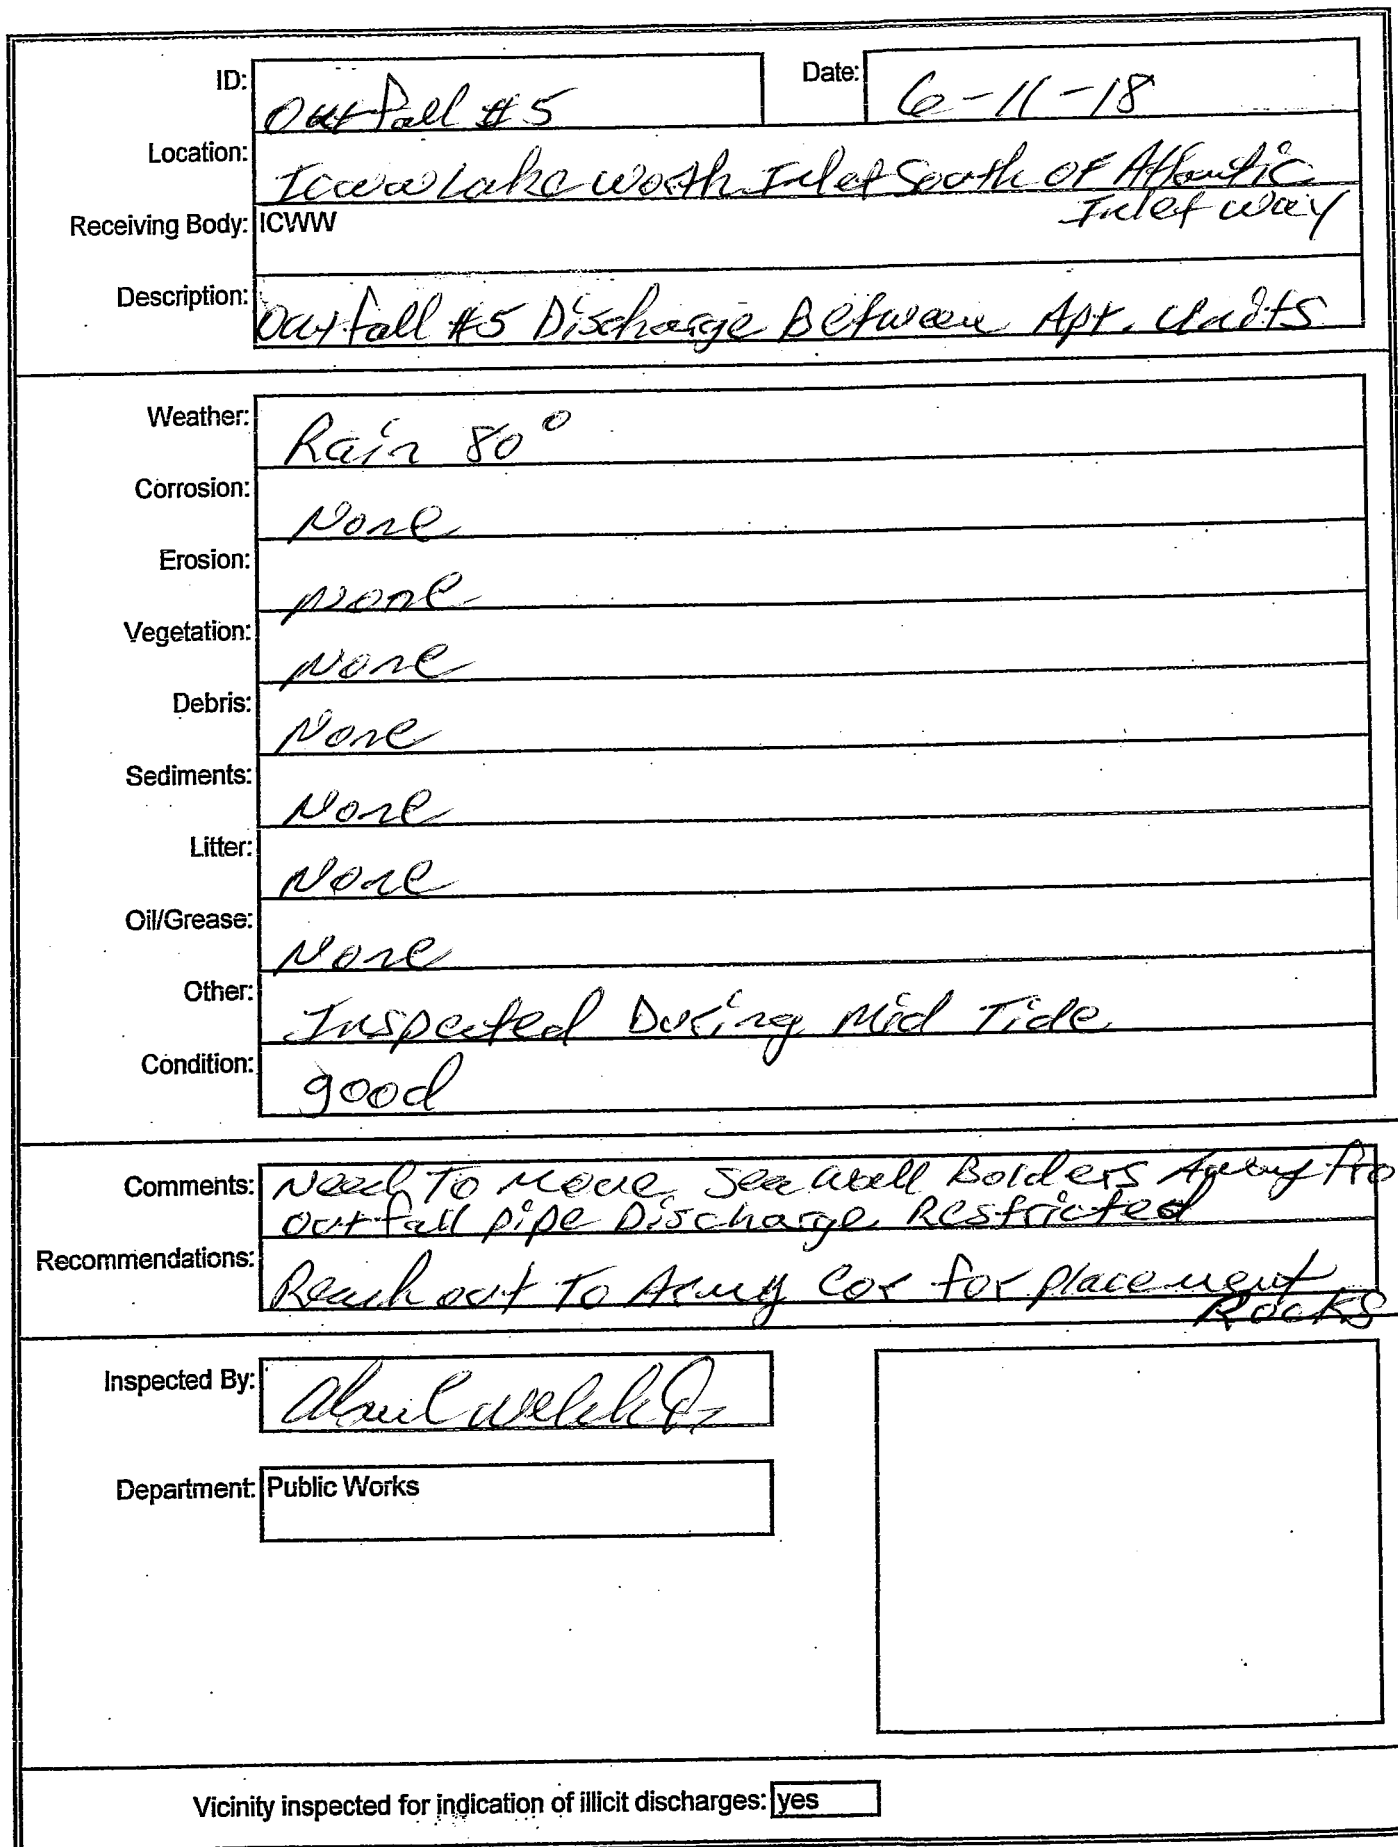 ID: Outfall #5 Date: 6-11-18
Location: ICWW Lake Worth Inlet South OF Atlantic
Inlet way
Receiving Body: ICWW
Description: Outfall #5 Discharge Between Apt. Units
Weather: Rain 80°
Corrosion: None
Erosion: None
Vegetation: None
Debris: None
Sediments: None
Litter: None
Oil/Grease: None
Other: Inspected During Mid Tide
Condition: good
Comments: Need To Move Sea wall Bolders Away Fro
outfall pipe Discharge Restricted
Recommendations: Reach out To Army Cor for placement
Rocks
Inspected By: Welch Jr
Department: Public Works
Vicinity inspected for indication of illicit discharges: yes